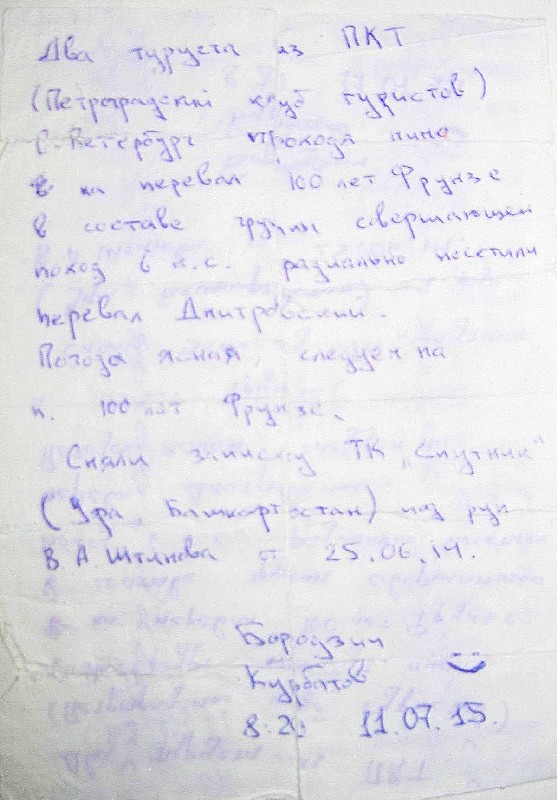 Два туриста из ПКТ
(Петроградский клуб туристов)
С-Петербург проходя мимо
на перевал 100 лет Фрунзе
в составе группы совершающей
поход 6 к.с. радиально посетили
перевал Дмитровский.
Погода ясная, следуем на
п. 100 лет Фрунзе.
Сняли записку ТК „Спутник"
(Уфа, Башкортостан) под рук
В.А. Штанова от 25.06.14.
Бородзич
Курбатов
8:20 11.07.15.